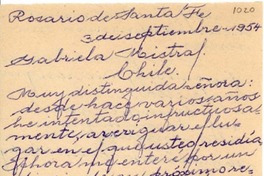 1020
Rosario de Santa Fe
3 de septiembre - 1954
Gabriela Mistral.
Chile.
Muy distinguida señora:
desde hace varios años
he intentado infructuosa-
mente, averiguar el lu-
gar en el que usted residía.
Ahora me entero por un